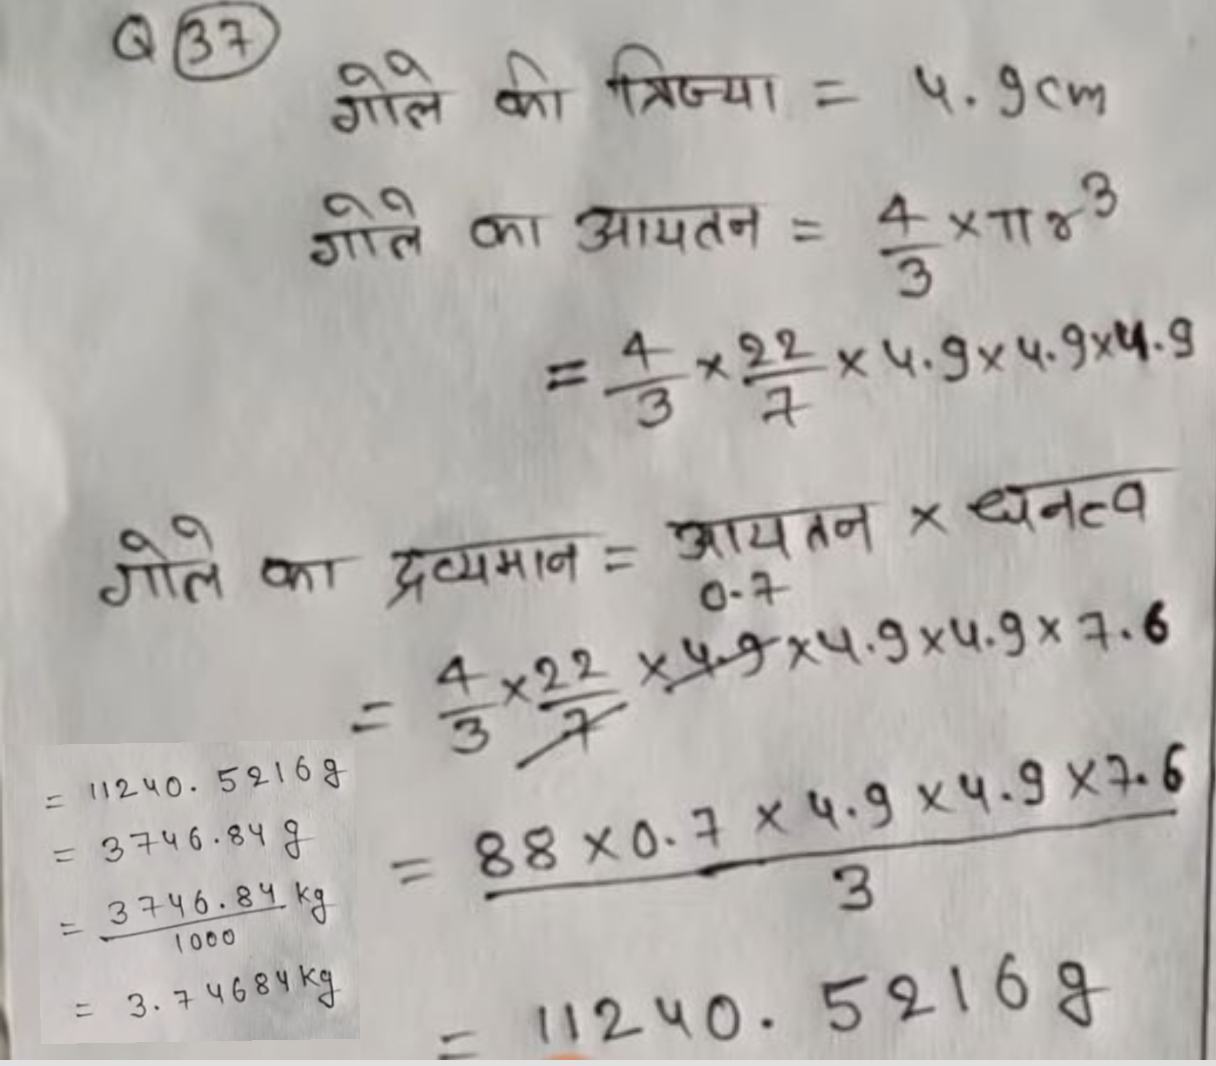 Q 37
गोले की त्रिज्या = 4.9cm
गोले का आयतन = 4/3 × πr³
= 4/3 × 22/7 × 4.9 × 4.9 × 4.9
गोले का द्रव्यमान = आयतन × घनत्व
0.7
= 4/3 × 22/7 × 4.9 × 4.9 × 4.9 × 7.6
= 88 × 0.7 × 4.9 × 4.9 × 7.6 / 3
= 11240.5216 g
= 11240.5216 g
= 3746.84 g
= 3746.84 kg / 1000
= 3.74684 kg